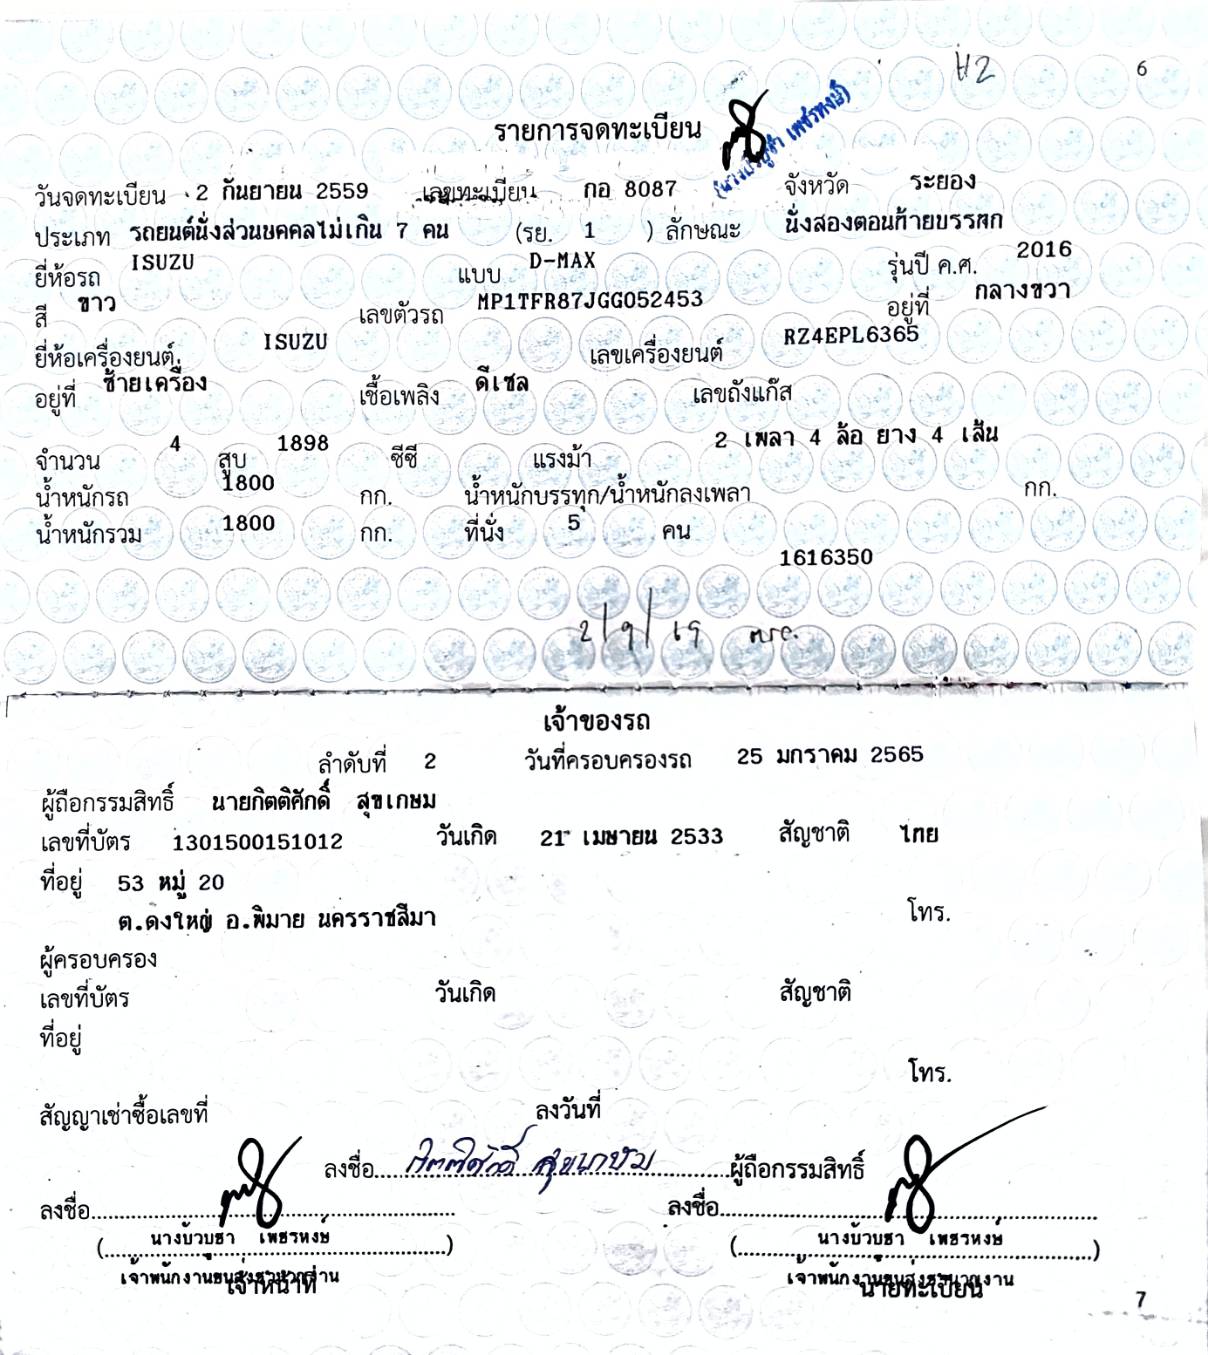 H2
6
รายการจดทะเบียน
วันจดทะเบียน 2 กันยายน 2559 เลขทะเบียน กอ 8087 จังหวัด ระยอง
ประเภท รถยนต์นั่งส่วนบุคคลไม่เกิน 7 คน (รย. 1 ) ลักษณะ นั่งสองตอนท้ายบรรทุก
ยี่ห้อรถ ISUZU แบบ D-MAX รุ่นปี ค.ศ. 2016
สี ขาว เลขตัวรถ MP1TFR87JGG052453 อยู่ที่ กลางขวา
ยี่ห้อเครื่องยนต์ ISUZU เลขเครื่องยนต์ RZ4EPL6365
อยู่ที่ ซ้ายเครื่อง เชื้อเพลิง ดีเซล เลขถังแก๊ส
จำนวน 4 สูบ 1898 ซีซี แรงม้า 2 เพลา 4 ล้อ ยาง 4 เส้น
น้ำหนักรถ 1800 กก. น้ำหนักบรรทุก/น้ำหนักลงเพลา กก.
น้ำหนักรวม 1800 กก. ที่นั่ง 5 คน
1616350
2/9/59
เจ้าของรถ
ลำดับที่ 2 วันที่ครอบครองรถ 25 มกราคม 2565
ผู้ถือกรรมสิทธิ์ นายกิตติศักดิ์ สุขเกษม
เลขที่บัตร 1301500151012 วันเกิด 21 เมษายน 2533 สัญชาติ ไทย
ที่อยู่ 53 หมู่ 20
ต.ดงใหญ่ อ.พิมาย นครราชสีมา โทร.
ผู้ครอบครอง
เลขที่บัตร วันเกิด สัญชาติ
ที่อยู่
โทร.
สัญญาเช่าซื้อเลขที่ ลงวันที่
ลงชื่อ กิตติศักดิ์ สุขเกษม ผู้ถือกรรมสิทธิ์
ลงชื่อ ลงชื่อ
(นางบัวบูชา เพชรหงษ์) (นางบัวบูชา เพชรหงษ์)
เจ้าพนักงานขนส่งชำนาญงาน เจ้าพนักงานขนส่งชำนาญงาน
เจ้าหน้าที่ นายทะเบียน
7